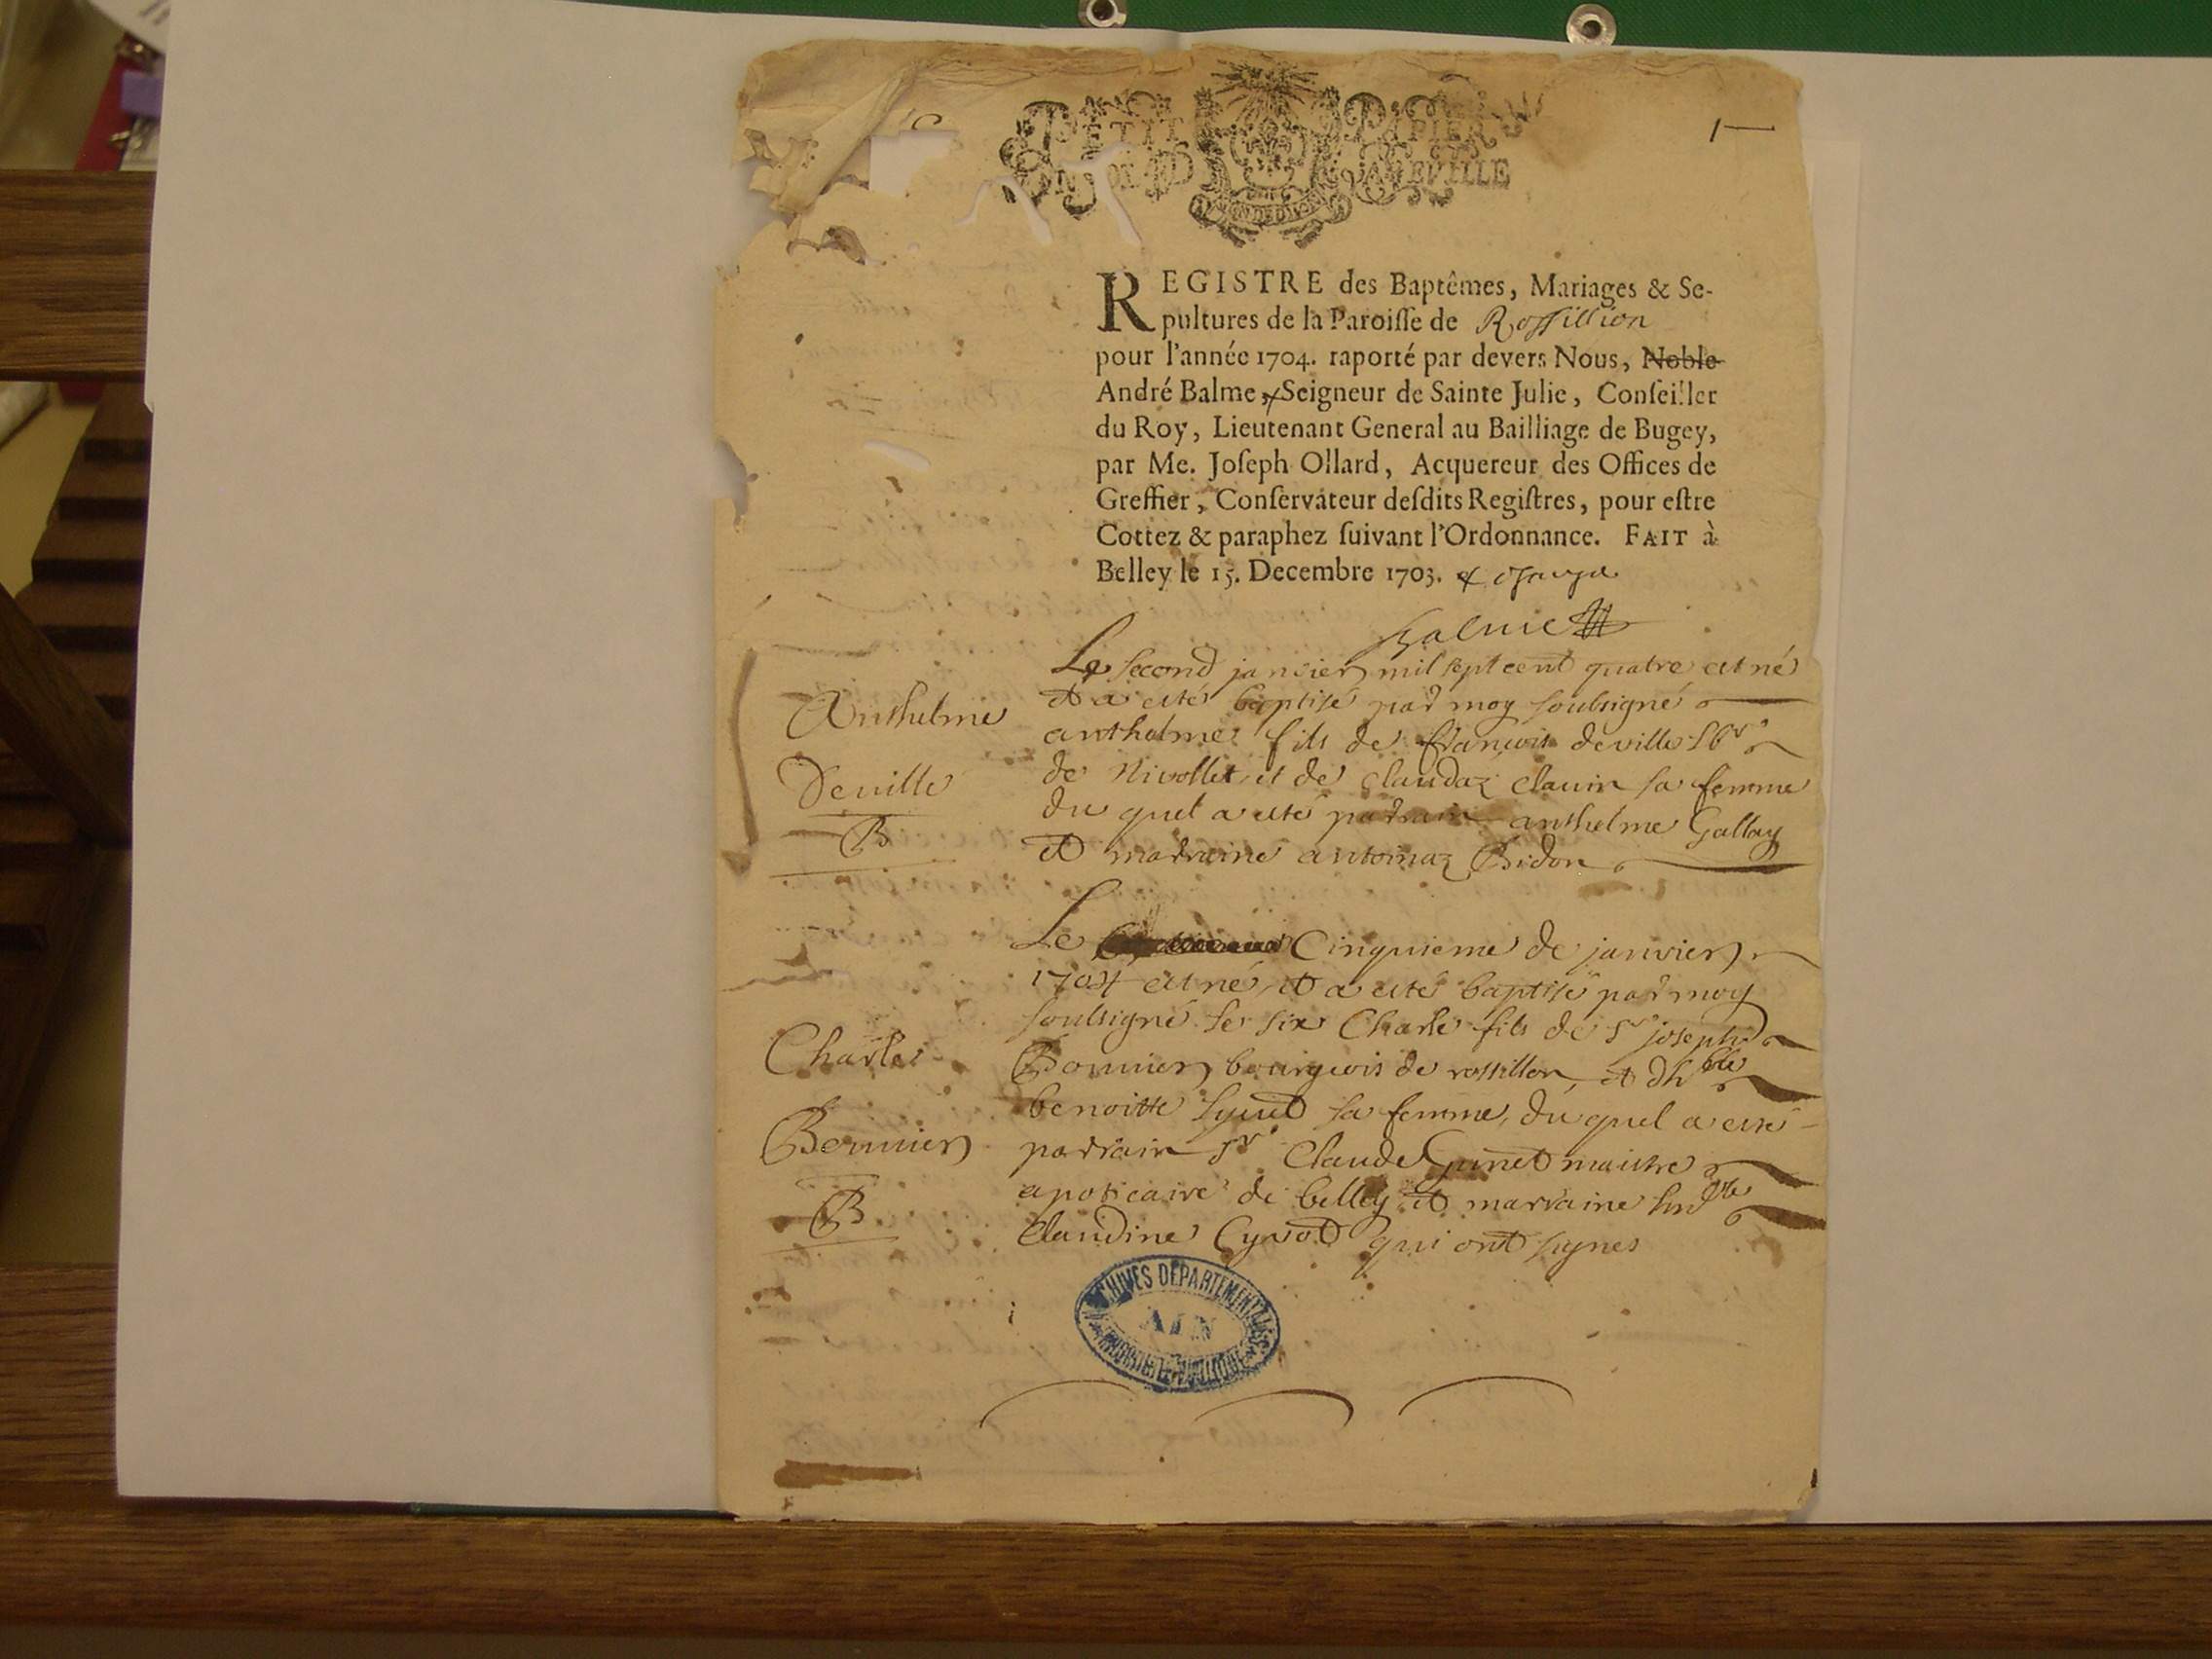 PETIT PAPIER
1
REGISTRE des Baptêmes, Mariages & Se-
pultures de la Paroisse de Rossillion
pour l'année 1704. raporté par devers Nous, Noble
André Balme, Seigneur de Sainte Julie, Conseiller
du Roy, Lieutenant General au Bailliage de Bugey,
par Me. Joseph Ollard, Acquereur des Offices de
Greffier, Conservateur desdits Registres, pour estre
Cottez & paraphez suivant l'Ordonnance. FAIT à
Belley le 15. Decembre 1703.
Balme
Le second janvier mil sept cent quatre est né
et a esté baptisé par moy soubsigné
Anthelme
anthelme fils de françois deville
Deville
de Nivollet et de claudaz clavin sa femme
du quel a esté padrain anthelme Gallay
B
et madraine antoinaz Bidon
Le Cinquieme de janvier
1704 est né et a esté baptisé par moy
soubsigné le six Charle fils de Sr joseph
Charles
Bonnier bourgeois de rossillon et
benoitte sa femme, du quel a esté
Bonnier
parrain Sr Claude maistre
apoticaire de belley et marraine
B
Claudine qui ont signes
ARCHIVES DEPARTEMENTALES
AIN